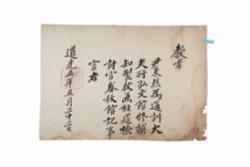 教旨
尹爲通訓大
夫行弘文館修撰
知製教兼經筵檢
討官春秋館記事
官者
道光五年五月二十二日